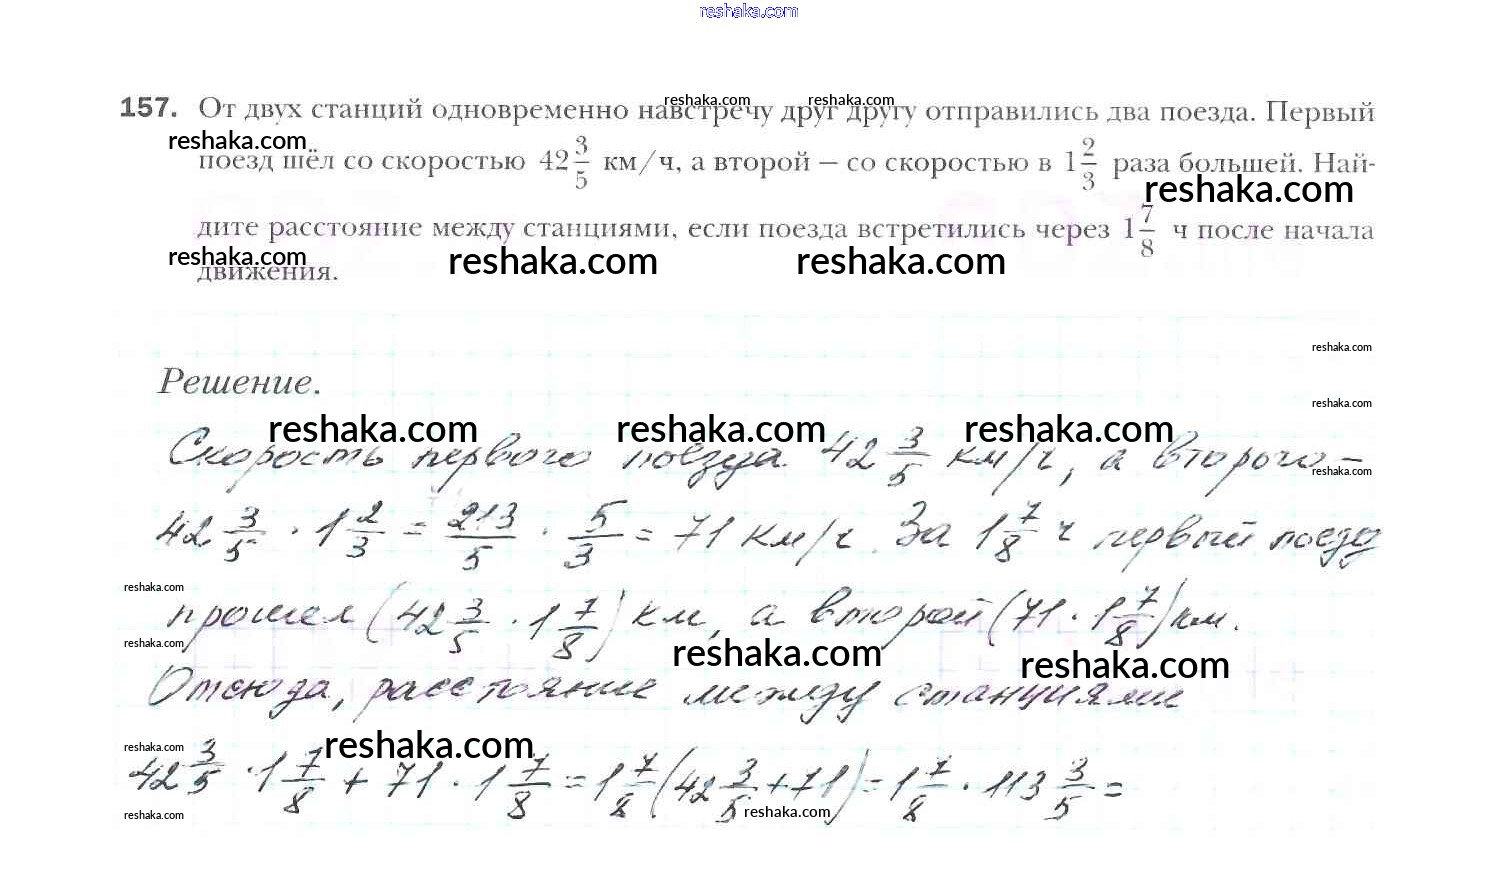 reshaka.com
157. От двух станций одновременно навстречу друг другу отправились два поезда. Первый
reshaka.com reshaka.com
reshaka.com
поезд шёл со скоростью 42 3/5 км/ч, а второй – со скоростью в 1 2/3 раза большей. Най-
reshaka.com
дите расстояние между станциями, если поезда встретились через 1 7/8 ч после начала
reshaka.com reshaka.com reshaka.com
движения.
reshaka.com
Решение.
reshaka.com
reshaka.com reshaka.com reshaka.com
Скорость первого поезда 42 3/5 км/ч, а второго –
reshaka.com
42 3/5 · 1 2/3 = 213/5 · 5/3 = 71 км/ч. За 1 7/8 ч первый поезд
reshaka.com
прошел (42 3/5 · 1 7/8) км, а второй (71 · 1 7/8) км.
reshaka.com reshaka.com reshaka.com
Отсюда, расстояние между станциями
reshaka.com reshaka.com
42 3/5 · 1 7/8 + 71 · 1 7/8 = 1 7/8 (42 3/5 + 71) = 1 7/8 · 113 3/5 =
reshaka.com reshaka.com